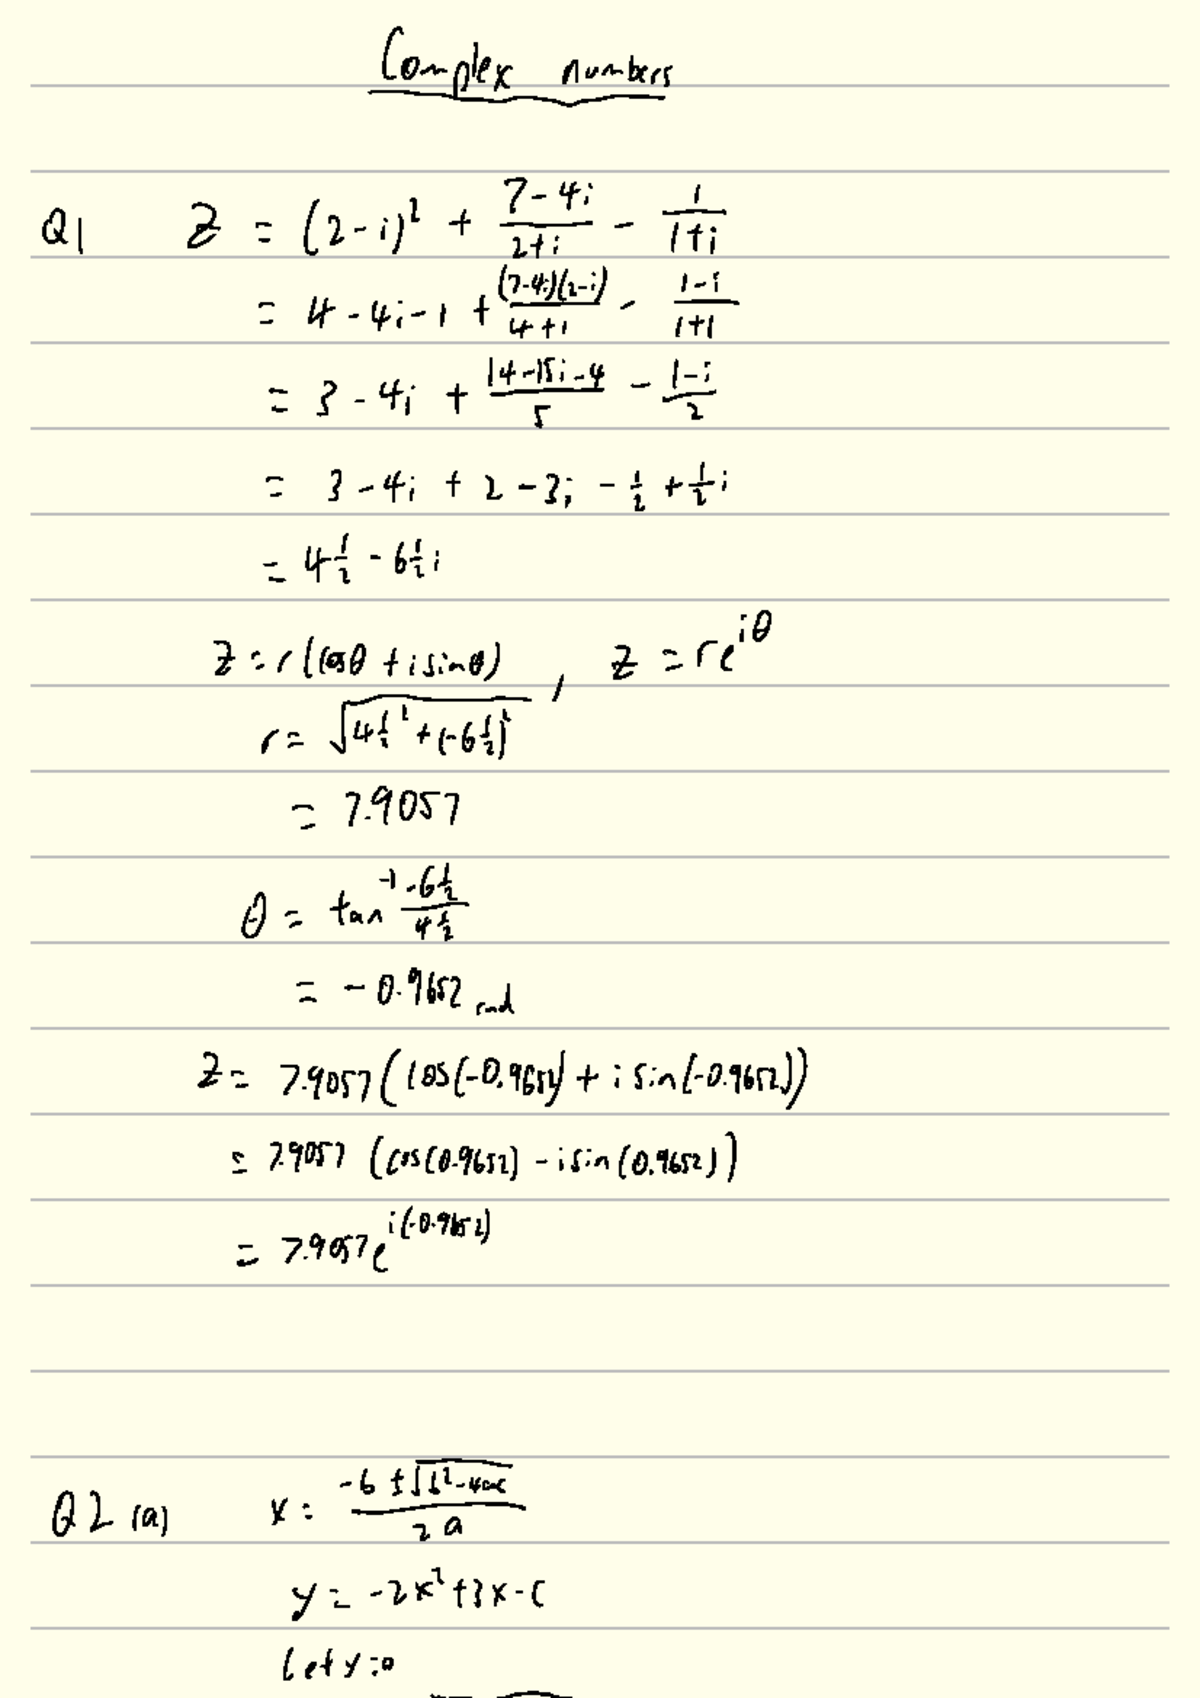 Complex numbers
Q1 z = (2-i)² + (7-4i)/(2+i) - 1/(1+i)
= 4-4i-1 + (7-4i)(2-i)/(4+1) - (1-i)/(1+1)
= 3-4i + (14-15i-4)/5 - (1-i)/2
= 3-4i + 2-3i - 1/2 + 1/2 i
= 4 1/2 - 6 1/2 i
z = r(cosθ + i sinθ), z = re^(iθ)
r = √(4 1/2² + (-6 1/2)²)
= 7.9057
θ = tan⁻¹ (-6 1/2)/(4 1/2)
= -0.9652 rad
z = 7.9057(cos(-0.9652) + i sin(-0.9652))
= 7.9057 (cos(0.9652) - i sin(0.9652))
= 7.9057e^(i(-0.9652))
Q2 (a) x = (-b ± √(b²-4ac))/(2a)
y = -2x²+3x-c
Let y=0